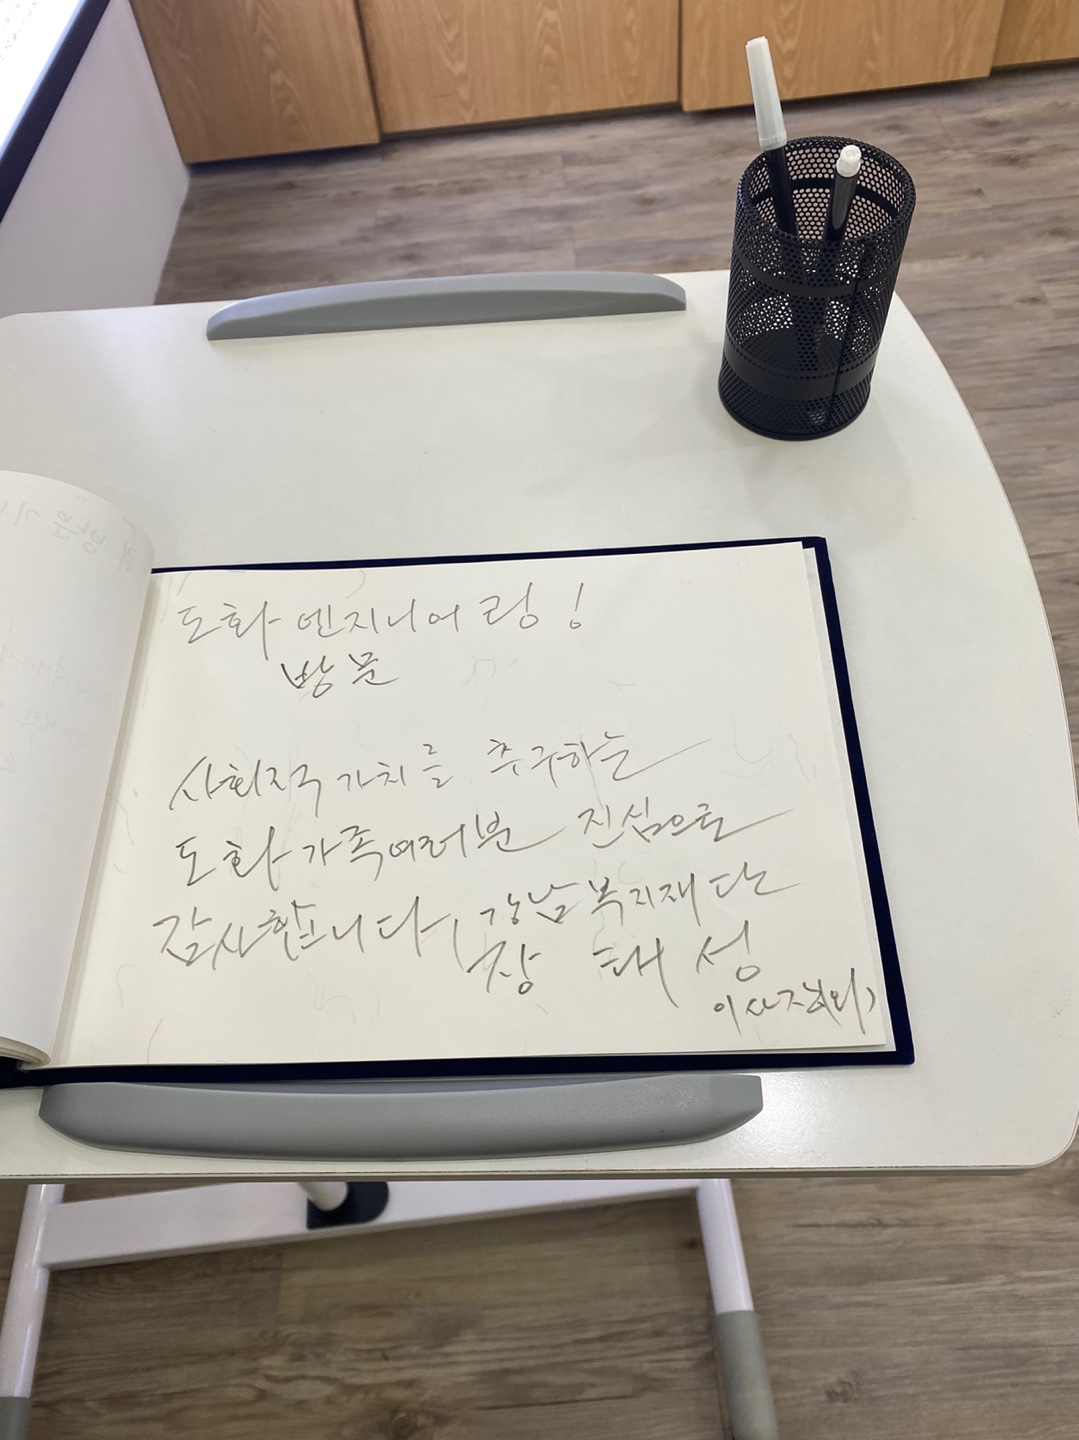 도화 엔지니어링!
방문
사회적 가치를 추구하는
도화 가족여러분 진심으로
감사합니다, 강남복지재단
장 태 성
이사장(외)